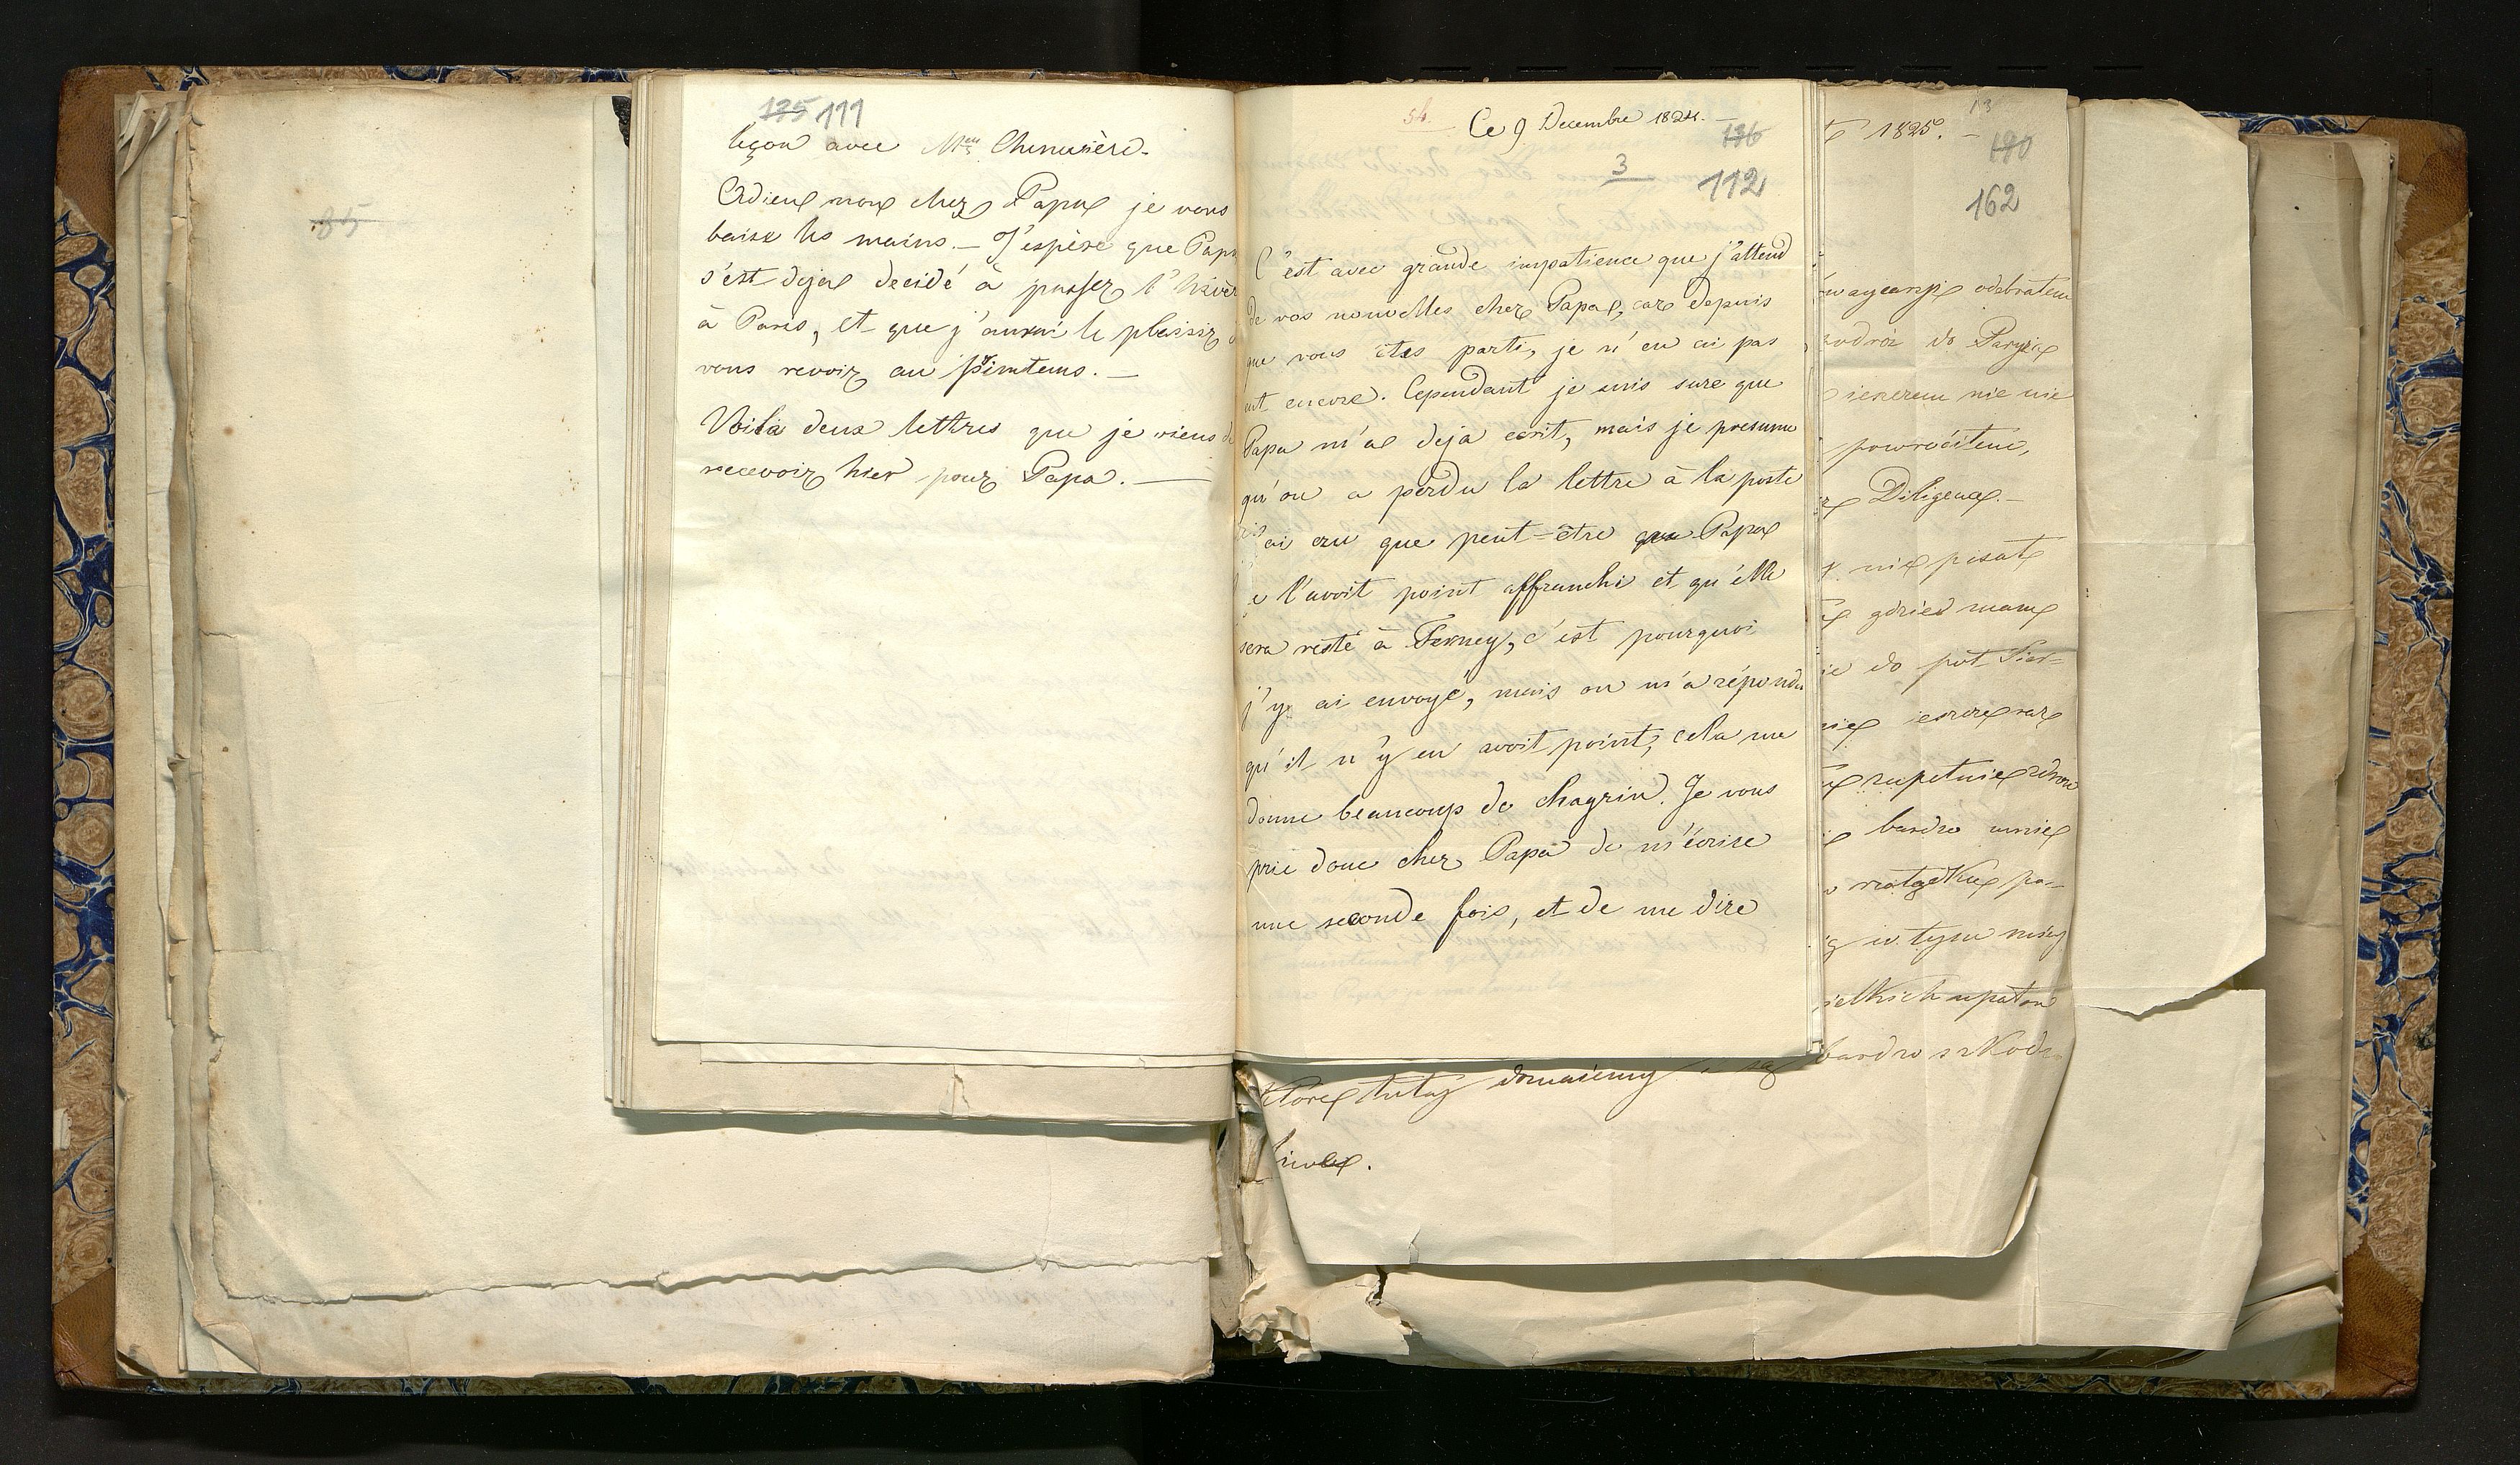 85
135 111
leçon avec Mme Chenusière.
Adieu mon cher Papa je vous
baise les mains. — J'espère que Papa
s'est deja decidé à passer l'hiver
à Paris, et que j'aurai le plaisir d
vous revoir au printems. —
Voila deux lettres que je viens de
recevoir hier pour Papa. —
54. Ce 9 Decembre 1824. —
136
3
112
C'est avec grande impatience que j'attend
de vos nouvelles cher Papa, car depuis
que vous êtes parti, je n'en ai pas
eut encore. Cependant je suis sure que
Papa m'a deja ecrit, mais je presume
qu'on a perdu la lettre à la poste
j'ai cru que peut-être Papa
e l'avoit point affranchi et qu'elle
sera resté à Ferney, c'est pourquoi
j'y ai envoyé, mais on m'a répondu
qu'il n'y en avoit point, cela me
donne beaucoup de chagrin. Je vous
prie donc cher Papa de m'écrire
une seconde fois, et de me dire
13
1825. —
190
162
odebratem
podróż do Paryża
ieszcze nie
powróciłem,
Diligence. —
nie pisał
gdzieś mamy
ie do pół
ieszcze raz
zupełnie zdrow
bardzo mnie
w tym
bardzo szkod
które tutaj